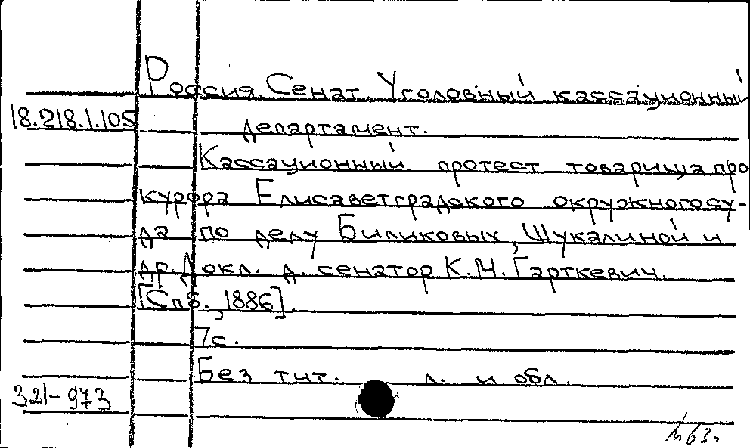 Россия. Сенат. Уголовный кассационный
18.218.1.105
департамент.
Кассационный протест товарища про
курора Елисаветградского окружного су-
да по делу Биликовых, Щукалиной и
др. Докл. д. сенатор К. М. Гарткевич.
[Спб., 1886].
7с.
Без тит. л. и обл.
321-973